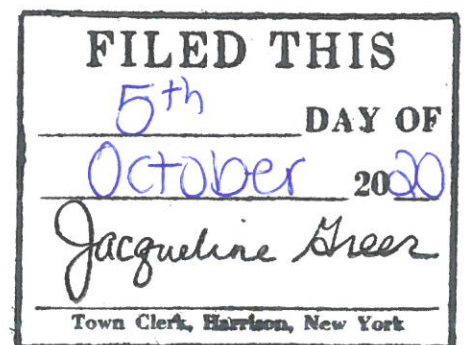 FILED THIS
5th DAY OF
October 2020
Jacqueline Greer
Town Clerk, Harrison, New York